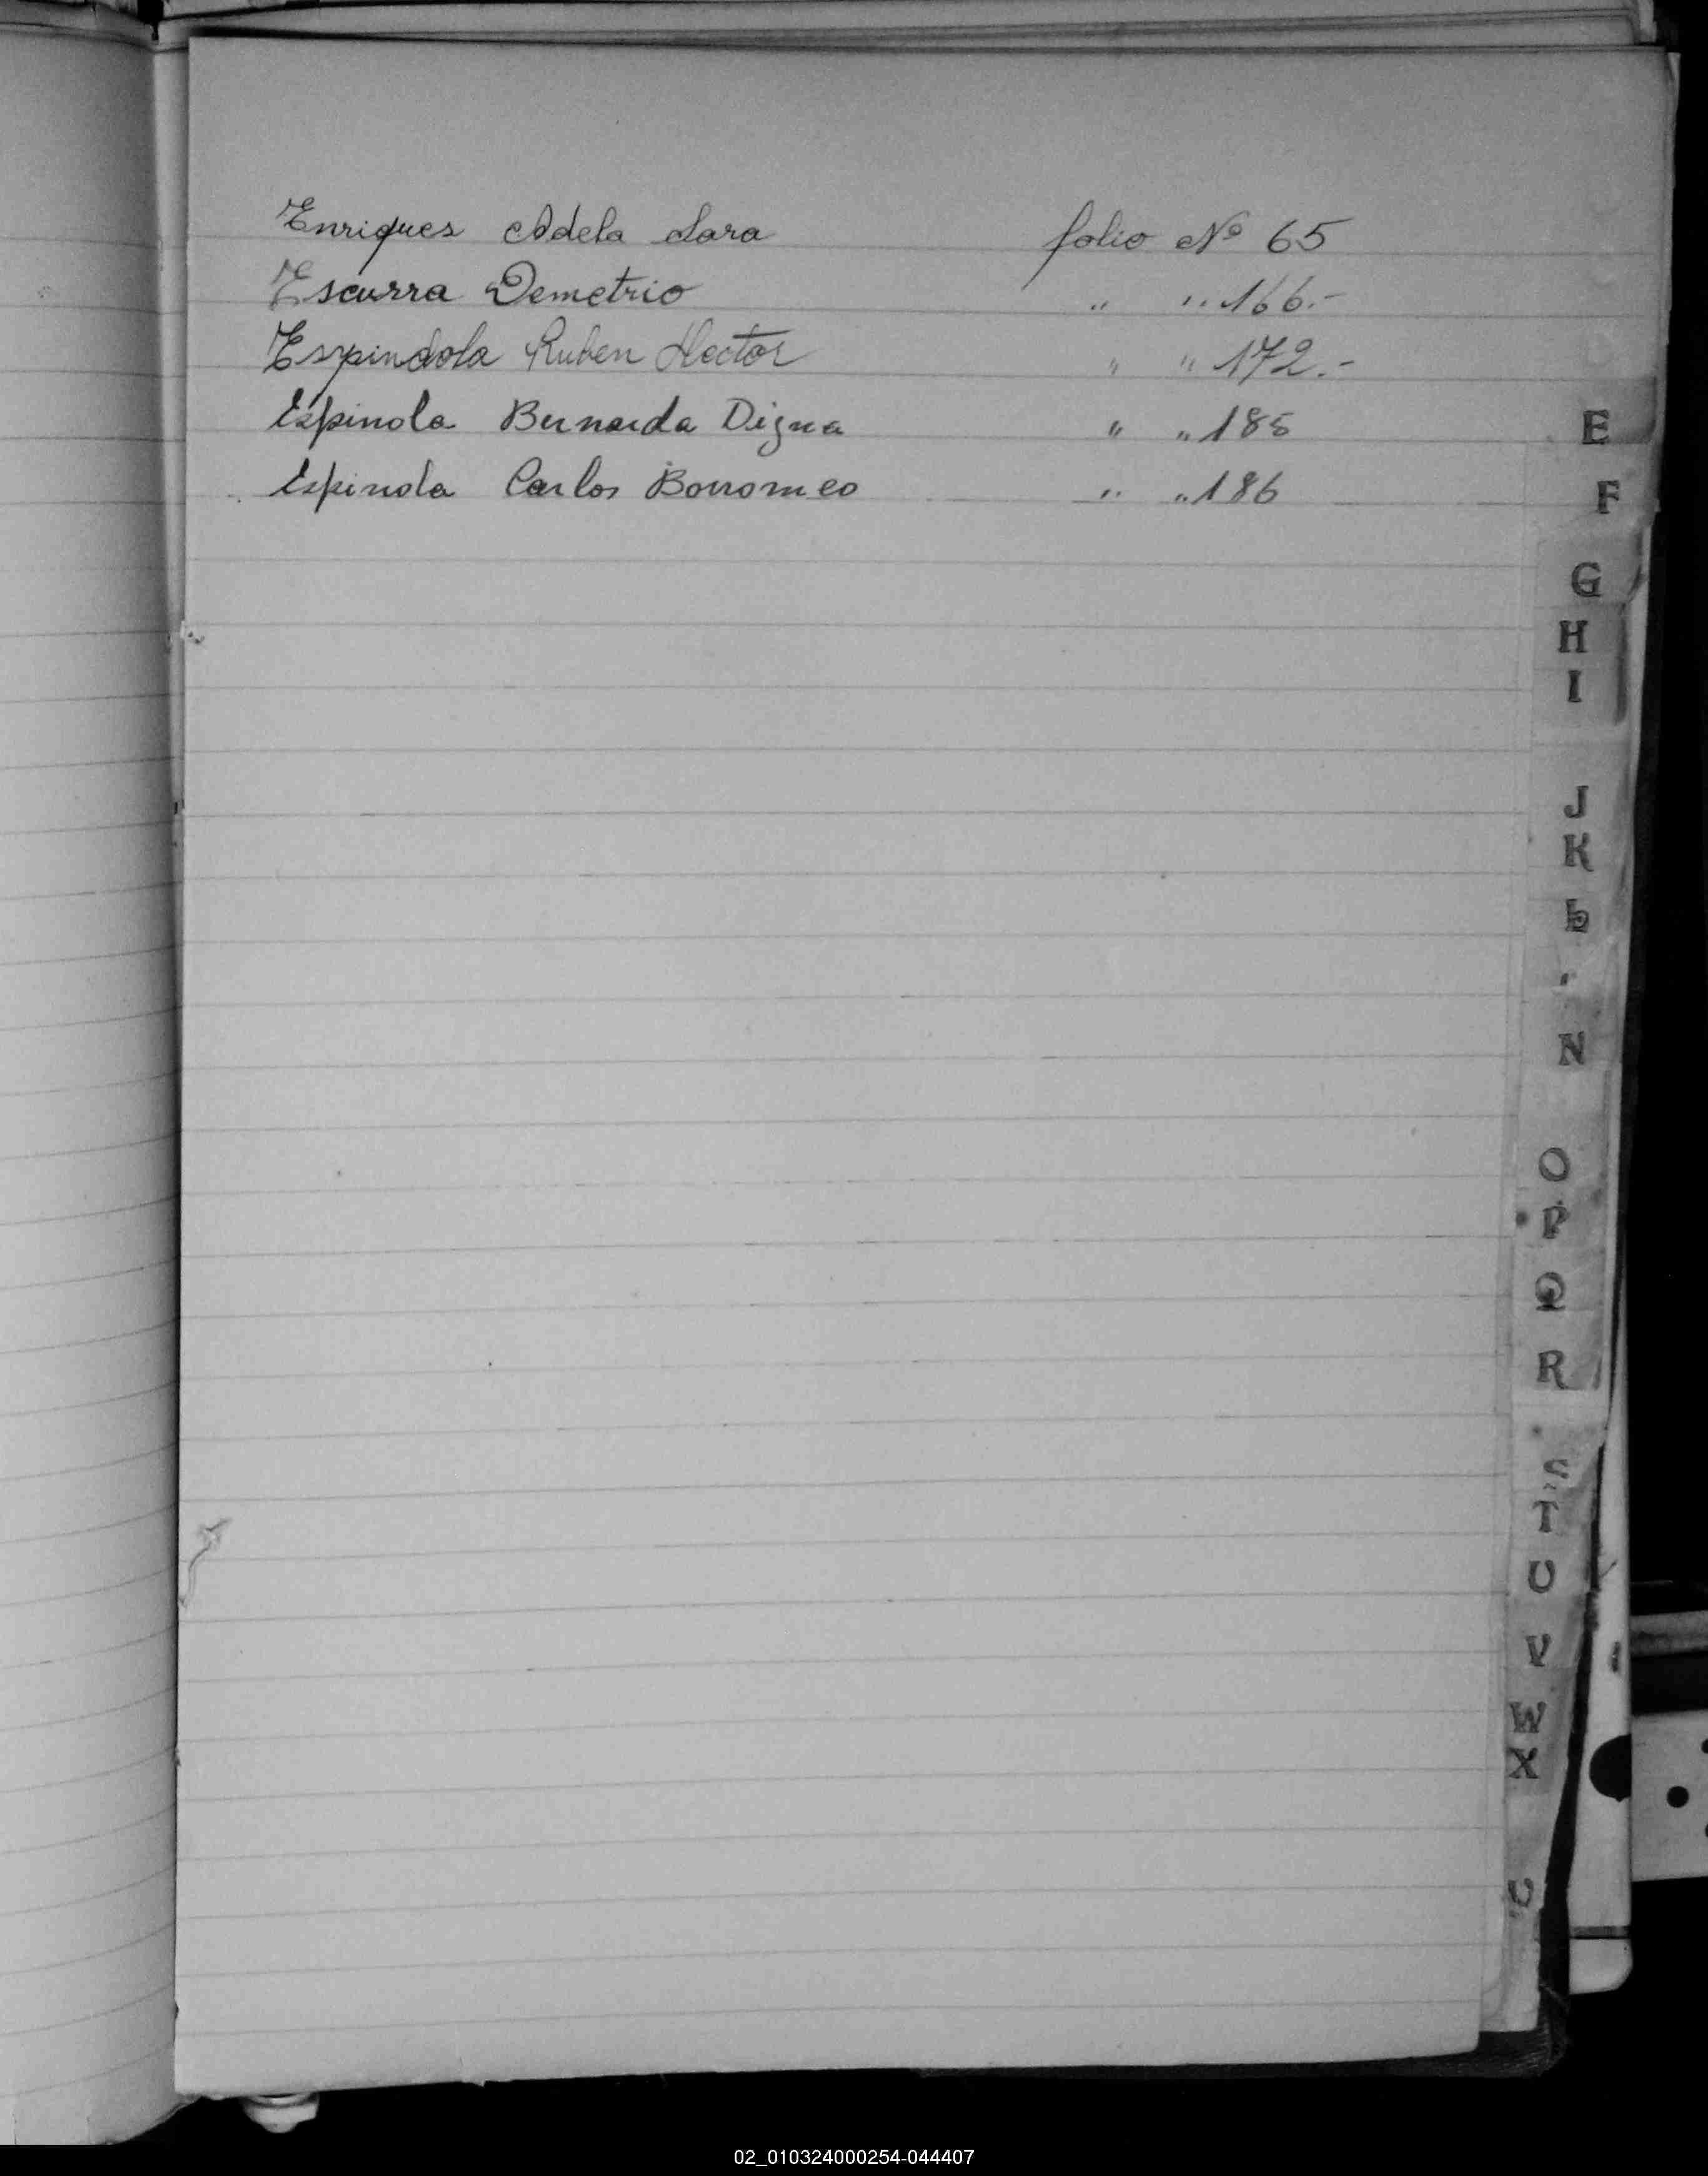 Enriques Adela Sara folio Nº 65
Escurra Demetrio " " 166.-
Espindola Ruben Hector " " 172.-
Espinola Bernarda Digna " " 185
Espinola Carlos Borromeo " " 186
E
F
G
H
I
J
K
L
N
O
P
Q
R
S
T
U
V
W
X
02_010324000254-044407